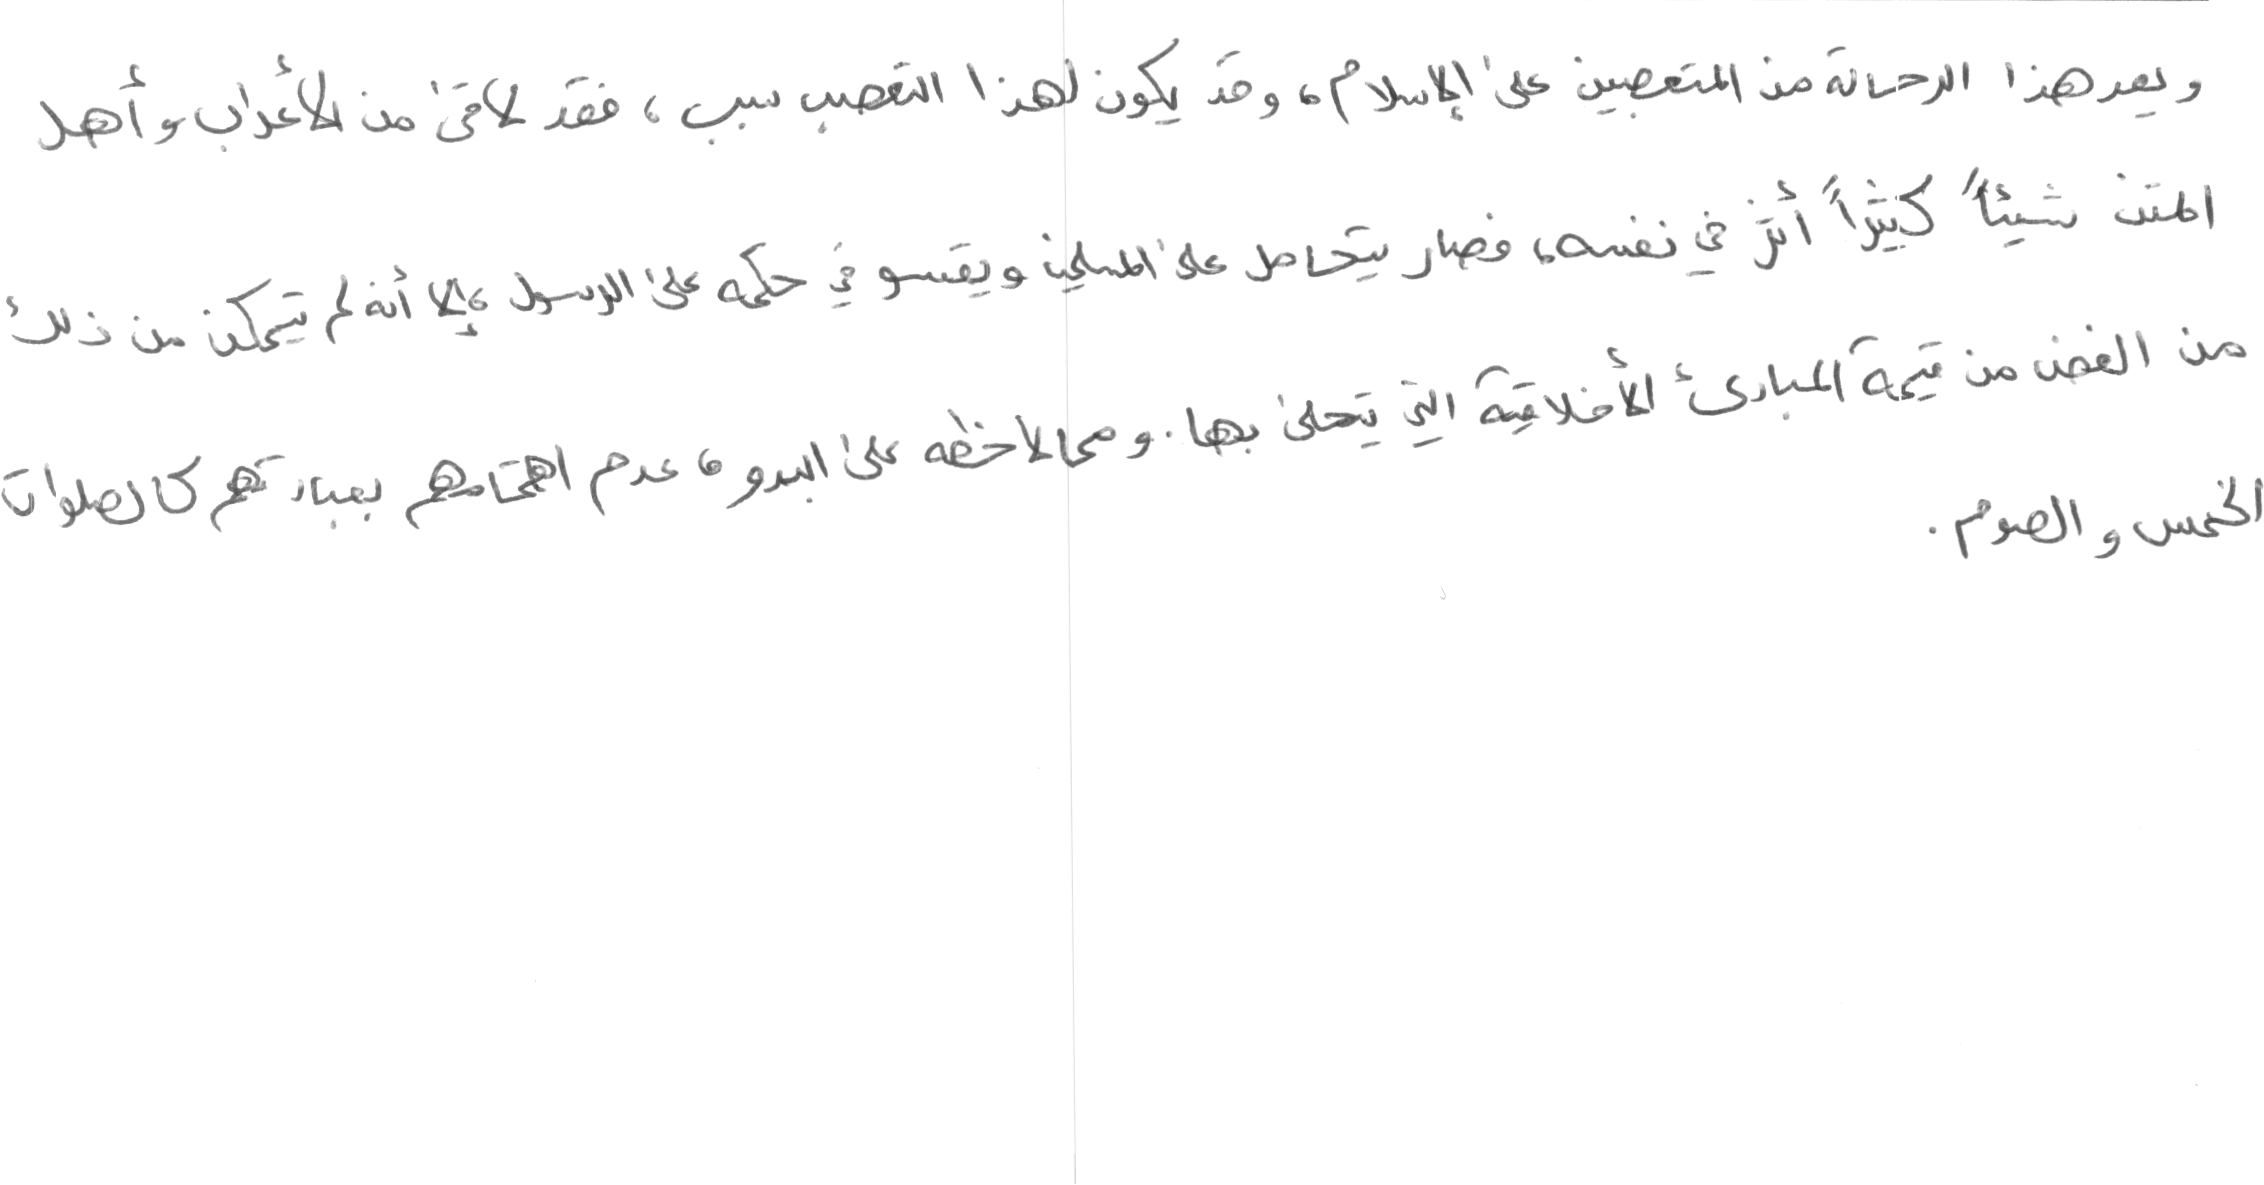 ويعد هذا الرحالة من المتعصبين على الإسلام، وقد يكون لهذا التعصب سبب، فقد لاقى من الأعراب وأهل
المدن شيئاً كثيراً أثر في نفسه، فصار يتحامل على المسلمين ويقسو في حكمه على الرسول، إلا أنه لم يتمكن من ذلك
من الغض من قيمة المبادئ الأخلاقية التي يتحلى بها. ومما لاحظه على البدو، عدم اهتمامهم بعبادتهم كالصلوات
الخمس والصوم.